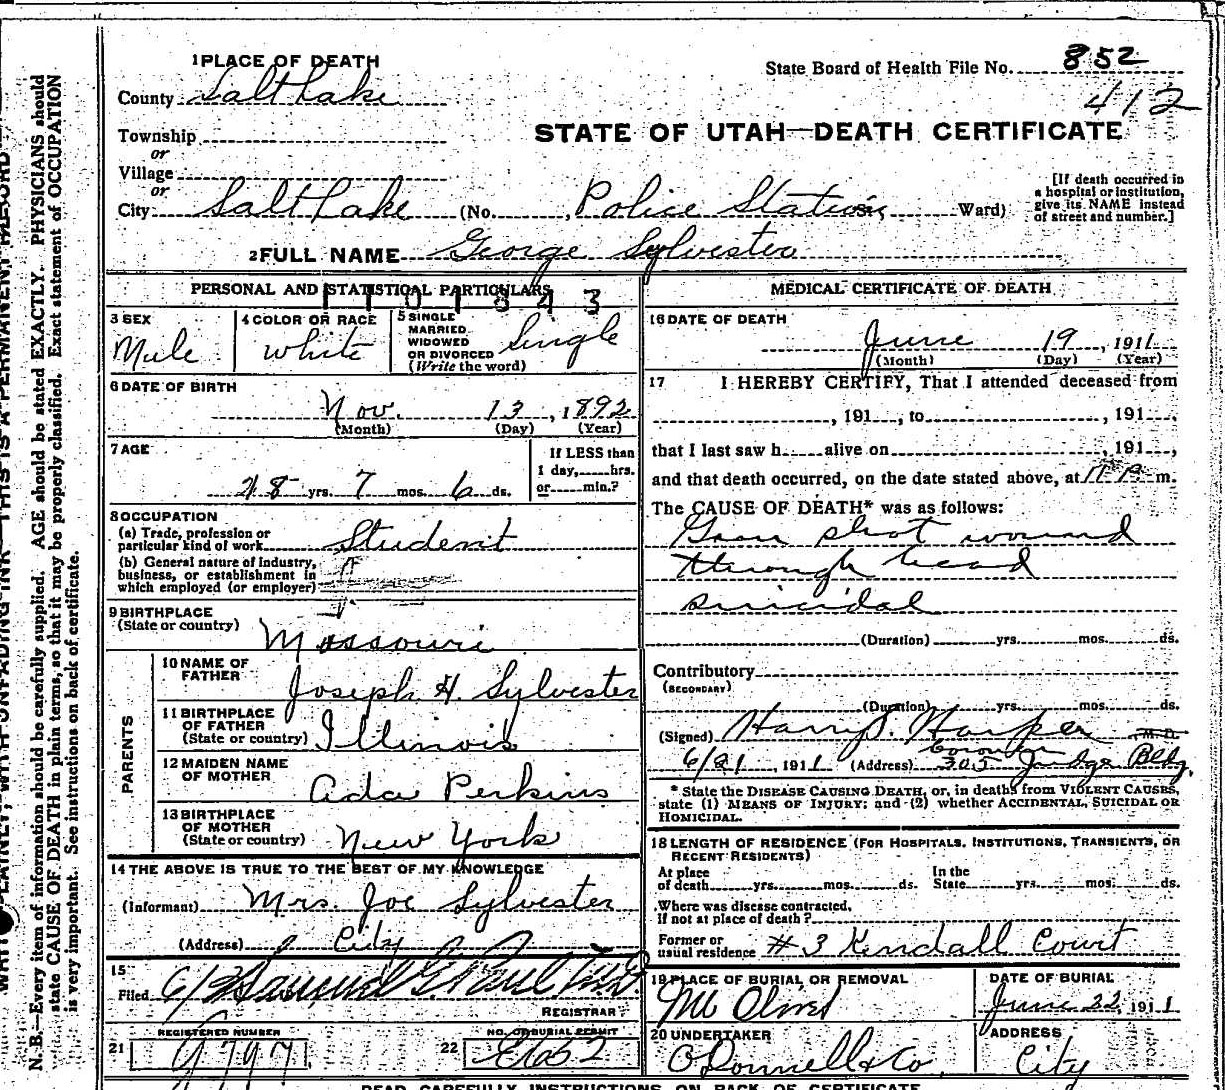 1 PLACE OF DEATH
State Board of Health File No. 852
County Salt Lake
412
STATE OF UTAH—DEATH CERTIFICATE
Township
or
Village
or
City Salt Lake (No. , Police Station Ward)
[If death occurred in
a hospital or institution,
give its NAME instead
of street and number.]
2 FULL NAME George Sylvester
PERSONAL AND STATISTICAL PARTICULARS
3 SEX
Male
4 COLOR OR RACE
White
5 SINGLE
MARRIED
WIDOWED
OR DIVORCED
(Write the word)
Single
6 DATE OF BIRTH
Nov. 13, 1892
(Month) (Day) (Year)
7 AGE
18 yrs. 7 mos. 6 ds.
If LESS than
1 day, hrs.
or min.?
8 OCCUPATION
(a) Trade, profession or
particular kind of work Student
(b) General nature of industry,
business, or establishment in
which employed (or employer)
9 BIRTHPLACE
(State or country)
Missouri
PARENTS
10 NAME OF
FATHER
Joseph H. Sylvester
11 BIRTHPLACE
OF FATHER
(State or country) Illinois
12 MAIDEN NAME
OF MOTHER
Ada Perkins
13 BIRTHPLACE
OF MOTHER
(State or country) New York
14 THE ABOVE IS TRUE TO THE BEST OF MY KNOWLEDGE
(Informant) Mrs. Joe Sylvester
(Address) City
15
Filed
REGISTRAR
REGISTERED NUMBER
21
NO. OF BURIAL PERMIT
22
MEDICAL CERTIFICATE OF DEATH
16 DATE OF DEATH
June 19, 1911
(Month) (Day) (Year)
17 I HEREBY CERTIFY, That I attended deceased from
, 191 , to , 191 ,
that I last saw h alive on , 191 ,
and that death occurred, on the date stated above, at m.
The CAUSE OF DEATH* was as follows:
Gun shot wound
through head
suicidal
(Duration) yrs. mos. ds.
Contributory
(SECONDARY)
(Duration) yrs. mos. ds.
(Signed) Harry S. Harper M.D.
Coroner
6/21, 1911 (Address) 305 Judge Bldg.
* State the DISEASE CAUSING DEATH, or, in deaths from VIOLENT CAUSES,
state (1) MEANS OF INJURY; and (2) whether ACCIDENTAL, SUICIDAL OR
HOMICIDAL.
18 LENGTH OF RESIDENCE (FOR HOSPITALS, INSTITUTIONS, TRANSIENTS, OR
RECENT RESIDENTS)
At place
of death yrs. mos. ds.
In the
State yrs. mos. ds.
Where was disease contracted,
if not at place of death?
Former or
usual residence #3 Kendall Court
19 PLACE OF BURIAL OR REMOVAL
Mt Olivet
DATE OF BURIAL
June 22, 1911
20 UNDERTAKER
O'Donnell & Co
ADDRESS
City
READ CAREFULLY INSTRUCTIONS ON BACK OF CERTIFICATE
N. B.—Every item of information should be carefully supplied. AGE should be stated EXACTLY. PHYSICIANS should
state CAUSE OF DEATH in plain terms, so that it may be properly classified. Exact statement of OCCUPATION
is very important. See instructions on back of certificate.